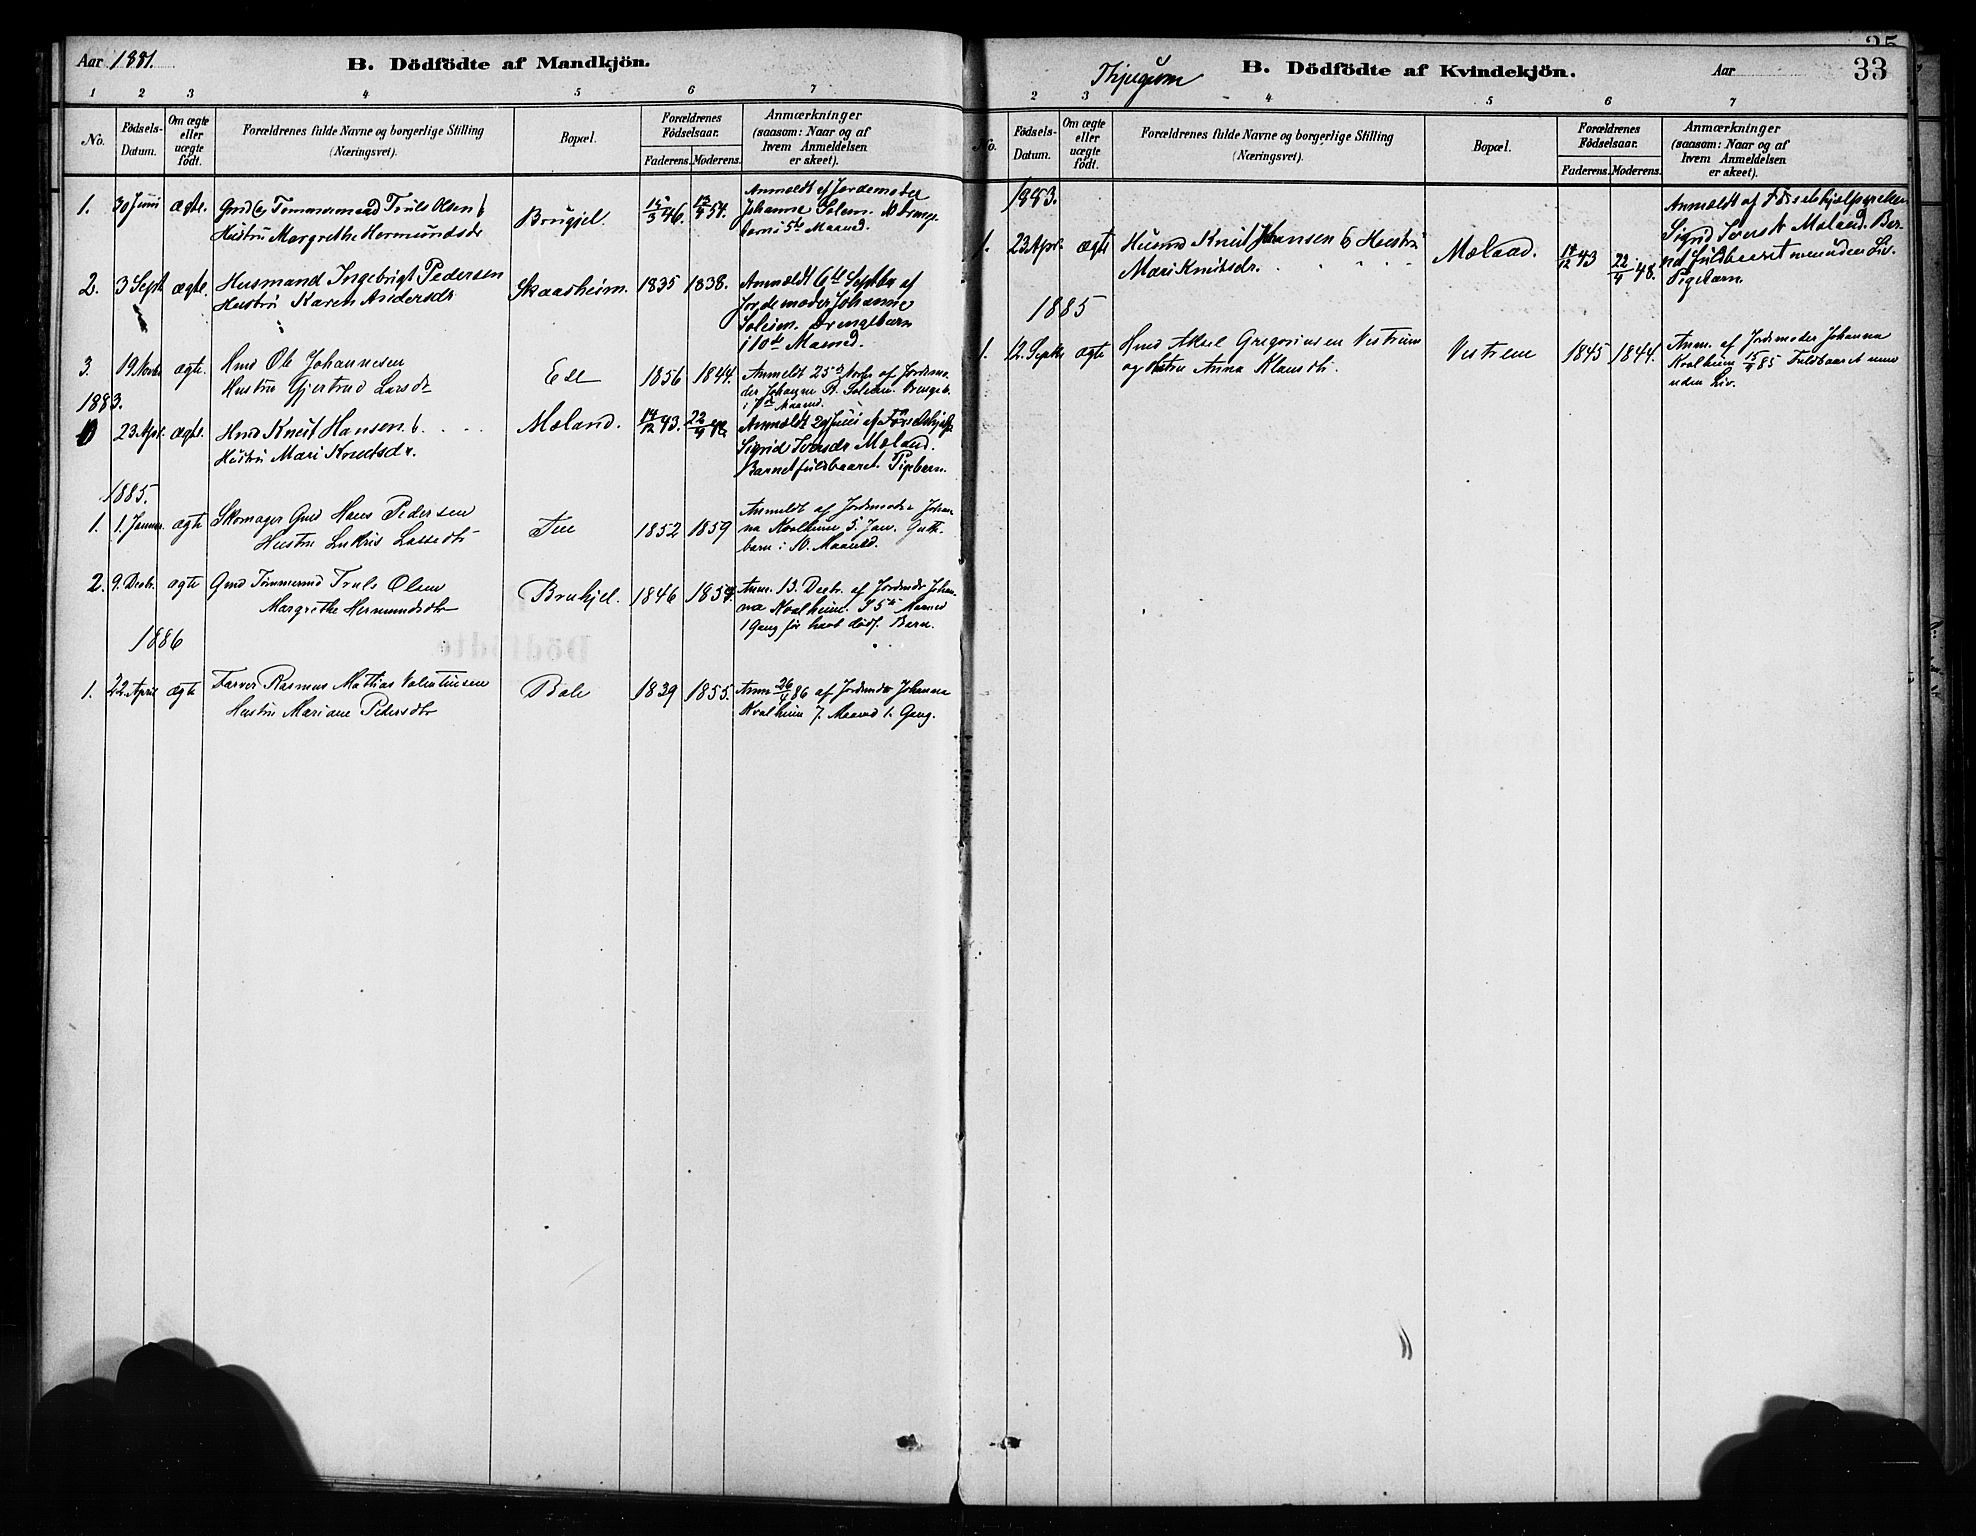 Aar 1881.
B. Dödfödte af Mandkjön.
1 2 3 4 5 6 7
No.
Födsels-
Datum.
Om ægte
eller
uægte
födt.
Forældrenes fulde Navne og borgerlige Stilling
(Næringsvei).
Bopæl.
Forældrenes
Födselsaar.
Faderens. Moderens.
Anmærkninger
(saasom: Naar og af
hvem Anmeldelsen
er skeet).
1. 30 Juni ægte. Tømmermand Truls Olsen 6
Hustru Margrethe Hermundsdr
15/3 46. 54.
Anmeldt af Jordemoder
Johanne Solem.
barn i 5te Maaned.
2. 3 Sept ægte. Husmand Ingebrigt Pedersen
Hustru Karen Andersdr
Skaasheim. 1835 1838.
Anmeldt 6te Septbr af
Jordemoder Johanne
Soleim. Drengebarn
i 10de Maaned.
3. 19 Novbr ægte. Hmd Ole Johannesen
Hustru Gjertrud Larsdr
Ese 1856 1844.
Anmeldt 25de Novbr af Jordemo-
der Johanne Soleim. Drengeb.
i 7de Maaned.
1883.
23 Apr. ægte. Hmd Knut Hansen 6
Hustru Mari Knutsdr.
Mæland. 14/12 43. 22/9 48.
Anmeldt 29 Juni af
Sigrid Iversdr Mæland.
Barnet fuldbaaret. Pigebarn.
1885.
1. 1. Januar ægte Skomager Gmd Hans Pedersen
Hustru Lukris Lassedtr
Tue 1852 1859
Anmeldt af Jordemoder Johan-
na Kvalheim 5. Jan. Gutte-
barn i 10. Maaned.
2. 9. Decbr. ægte Gmd Tømmermd Truls Olsen
Margrethe Hermundsdtr
Brukjel. 1846 1854.
Anm. 13. Decbr. af Jordmdr Johan-
na Kvalheim. I 5te Maaned
1 Gang før havt dødf. Barn.
1886
1. 22. April ægte Farver Rasmus Mathias Valentinsen
Hustru Mariane Pedersdtr
Bale 1839 1855.
Anm 26/4 86 af Jordmdr Johanna
Kvalheim 7. Maaned 1. Gang.
Thjugum
B. Dödfödte af Kvindekjön.
Aar
33
2 3 4 5 6 7
No.
Födsels-
Datum.
Om ægte
eller
uægte
födt.
Forældrenes fulde Navne og borgerlige Stilling
(Næringsvei).
Bopæl.
Forældrenes
Födselsaar.
Faderens. Moderens.
Anmærkninger
(saasom: Naar og af
hvem Anmeldelsen
er skeet).
1883.
1. 23 Apr. ægte Husmd Knut Hansen 6 Hustru
Mari Knutsdr.
Mælaad. 14/12 43 22/9 48.
Anmeldt af
Sigrid Iversdr Mæland. Bar-
net fuldbaaret men uden Liv.
Pigebarn.
1885
1. 12. Septbr ægte Hmd Aksel Gregoriussen Vestrem
og Hstru Anna Klausdtr.
Vestrem 1845 1844.
Anm. af Jordemoder Johanna
Kvalheim 15/9 85 Fuldbaaret men
uden Liv.